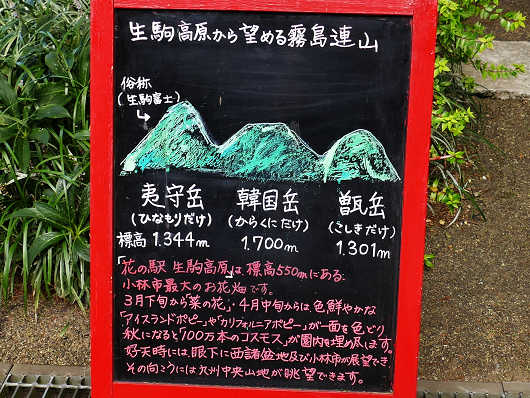 生駒高原から望める霧島連山
俗称
(生駒富士)
夷守岳 韓国岳 甑岳
(ひなもりだけ) (からくにだけ) (こしきだけ)
標高 1.344m 1.700m 1.301m
「花の駅 生駒高原」は、標高550mにある
小林市最大のお花畑です。
3月下旬から「菜の花」・4月中旬からは、色鮮やかな
「アイスランドポピー」や「カリフォルニアポピー」が一面を色どり
秋になると「100万本のコスモス」が園内を埋め尽します。
好天時には、眼下に西諸盆地及び小林市が展望でき
その向こうには九州中央山地が眺望できます。